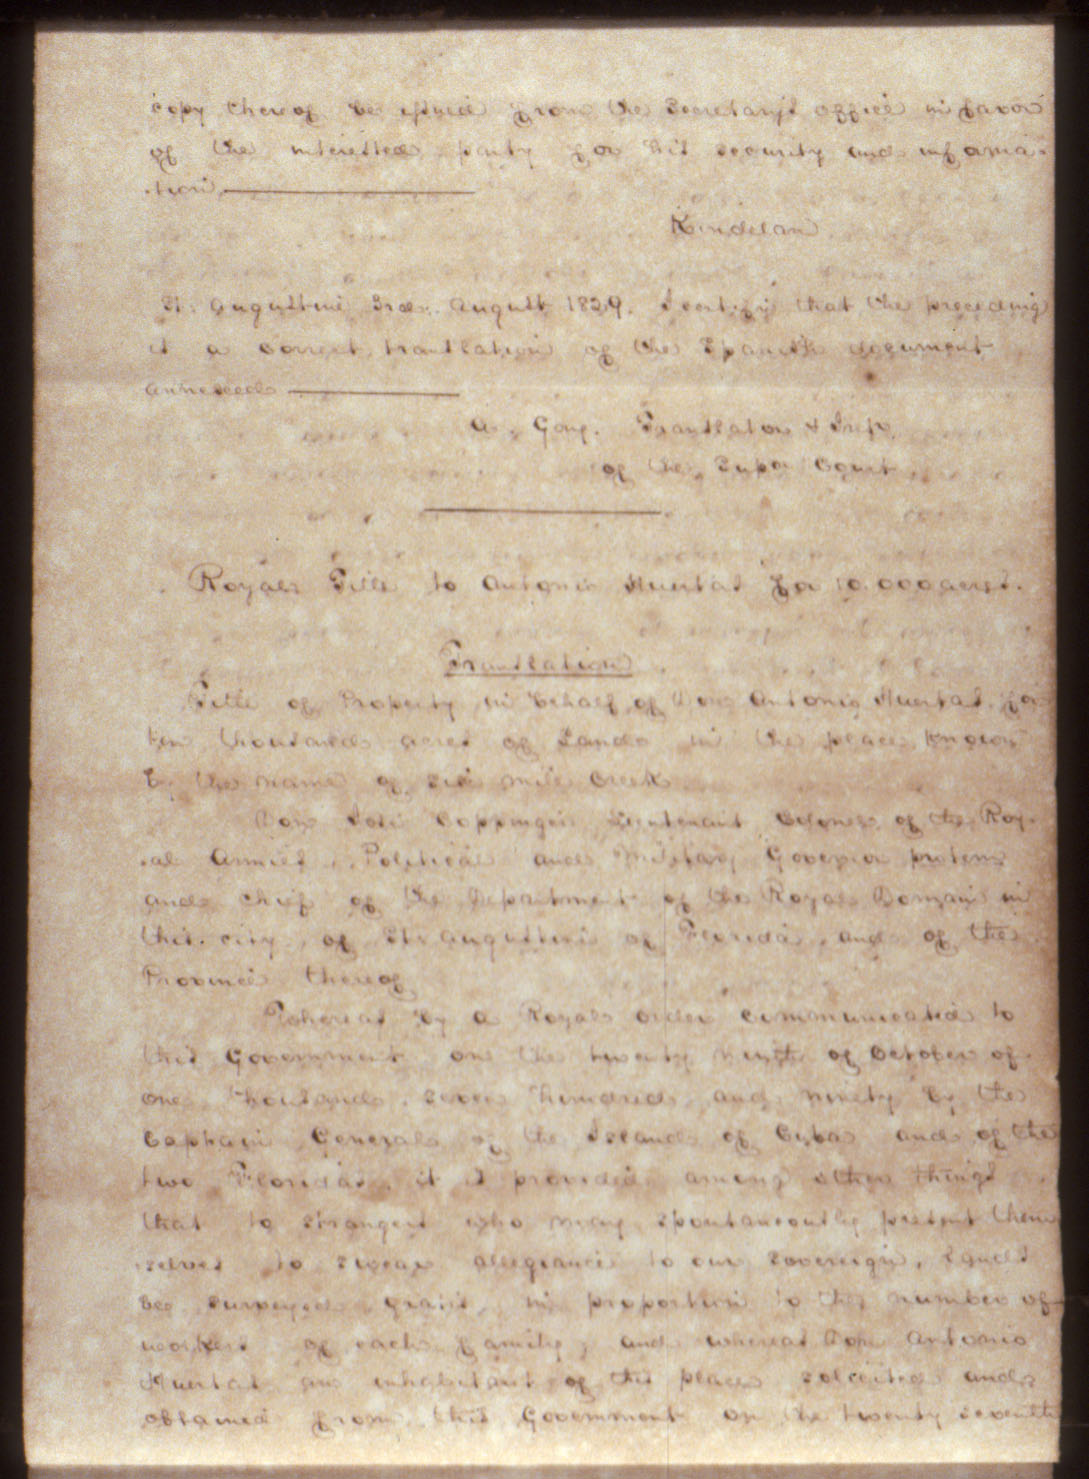 copy thereof be issued from the Secretary's office in favor
of the interested party for his security and informa-
-tion
Kindelan
St. Augustine 3rd. August 1829. I certify that the preceding
is a correct translation of the Spanish document
annexed
A. Gay. Translator & Intr.
of the Supr Court
Royal Title to Antonio Huertas for 10.000 acres.
Translation
Title of Property in behalf of Don Antonio Huertas for
ten thousand acres of Land in the place known
by the name of six mile Creek
Don José Coppinger Lieutenant Colonel of the Roy-
-al Armies, Political and Military Governor protem
and chief of the Department of the Royal Domain in
this city of St Augustine of Florida, and of the
Province thereof
Whereas by a Royal order communicated to
this Government on the twenty ninth of October of
one thousand seven hundred and ninety by the
Captain General of the Island of Cuba and of the
two Floridas, it is provided among other things
that to strangers who may spontaneously present them
selves to swear allegiance to our Sovereign, Lands
be surveyed gratis, in proportion to the number of
workers of each family; and whereas Don Antonio
Huertas an inhabitant of this place solicited and
obtained from this Government on the twenty seventh